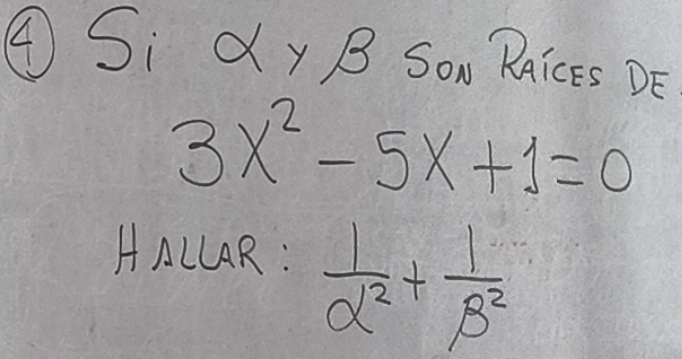 ④ Si α y β SON RAÍCES DE
3X² - 5X + 1 = 0
HALLAR: 1/α² + 1/β²